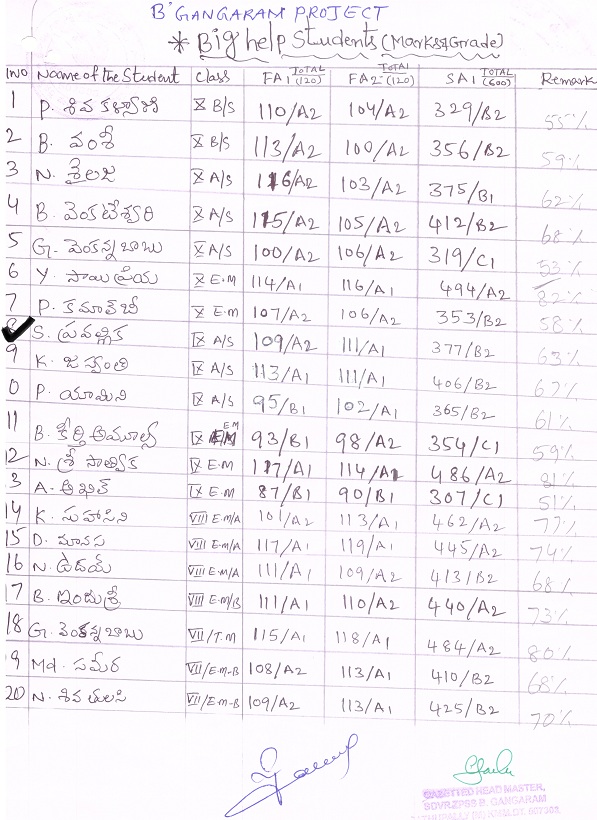 B' GANGARAM PROJECT
* Big help Students (Marks & Grade)
SNO Name of the Student Class FA1 TOTAL (120) FA2 TOTAL (120) SA1 TOTAL (600) Remark
1 P. శివ కళ్యాణి X B/S 110/A2 104/A2 329/B2 55%
2 B. వంశీ X B/S 113/A2 100/A2 356/B2 59%
3 N. శైలజ X A/S 116/A2 103/A2 375/B1 62%
4 B. వెంకటేశ్వరి X A/S 115/A2 105/A2 412/B2 68%
5 G. వెంకన్న బాబు X A/S 100/A2 106/A2 319/C1 53%
6 Y. సాయి ప్రియ X E.M 114/A1 116/A1 494/A2 82%
7 P. కమాల్ బీ X E.M 107/A2 106/A2 353/B2 58%
8 S. ప్రవల్లిక IX A/S 109/A2 111/A1 377/B2 63%
9 K. జస్వంతి IX A/S 113/A1 111/A1 406/B2 67%
0 P. యామిని IX A/S 95/B1 102/A1 365/B2 61%
11 B. కీర్తి అమూల్య IX EM 93/B1 98/A2 354/C1 59%
12 N. శ్రీ సాత్విక IX E.M 117/A1 114/A1 486/A2 81%
3 A. అఖిల్ IX E.M 87/B1 90/B1 307/C1 51%
14 K. సుహాసిని VIII E.M/A 101/A2 113/A1 462/A2 77%
15 D. మానస VIII E.M/A 117/A1 119/A1 445/A2 74%
16 N. ఉదయ్ VIII E.M/A 111/A1 109/A2 413/B2 68%
17 B. ఇందుశ్రీ VIII E.M/B 111/A1 110/A2 440/A2 73%
18 G. వెంకన్నబాబు VII/T.M 115/A1 118/A1 484/A2 80%
9 Md. సమీర VII/E.M-B 108/A2 113/A1 410/B2 68%
20 N. శివ తులసి VII/E.M-B 109/A2 113/A1 425/B2 70%
GAZETTED HEAD MASTER,
B. GANGARAM